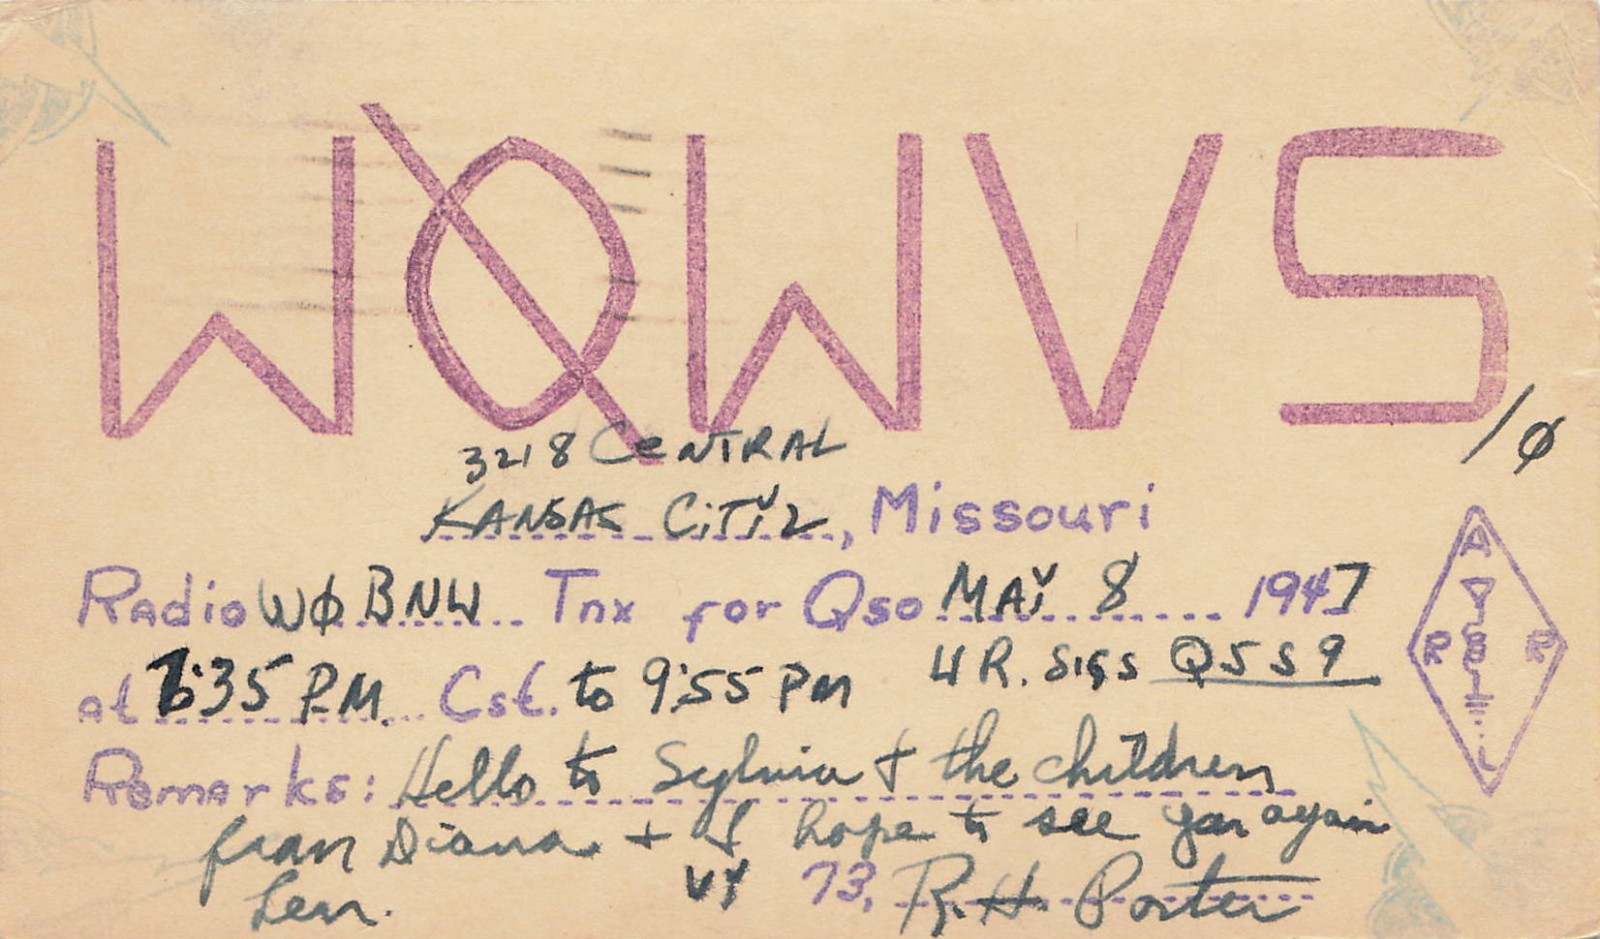 WØWVS
/Ø
3218 CeNTRAL
KANSAS CiTY 2, Missouri
Radio WØ BNW Tnx for Qso MAY 8 1947
at 7:35 P.M. Cst. to 9:55 Pm UR. Sigs Q5 S9
Remarks: Hello to Sylvia + the children
from Diana + I hope to see you again
Len.
VY 73, R.H. Porter
A
R R
L